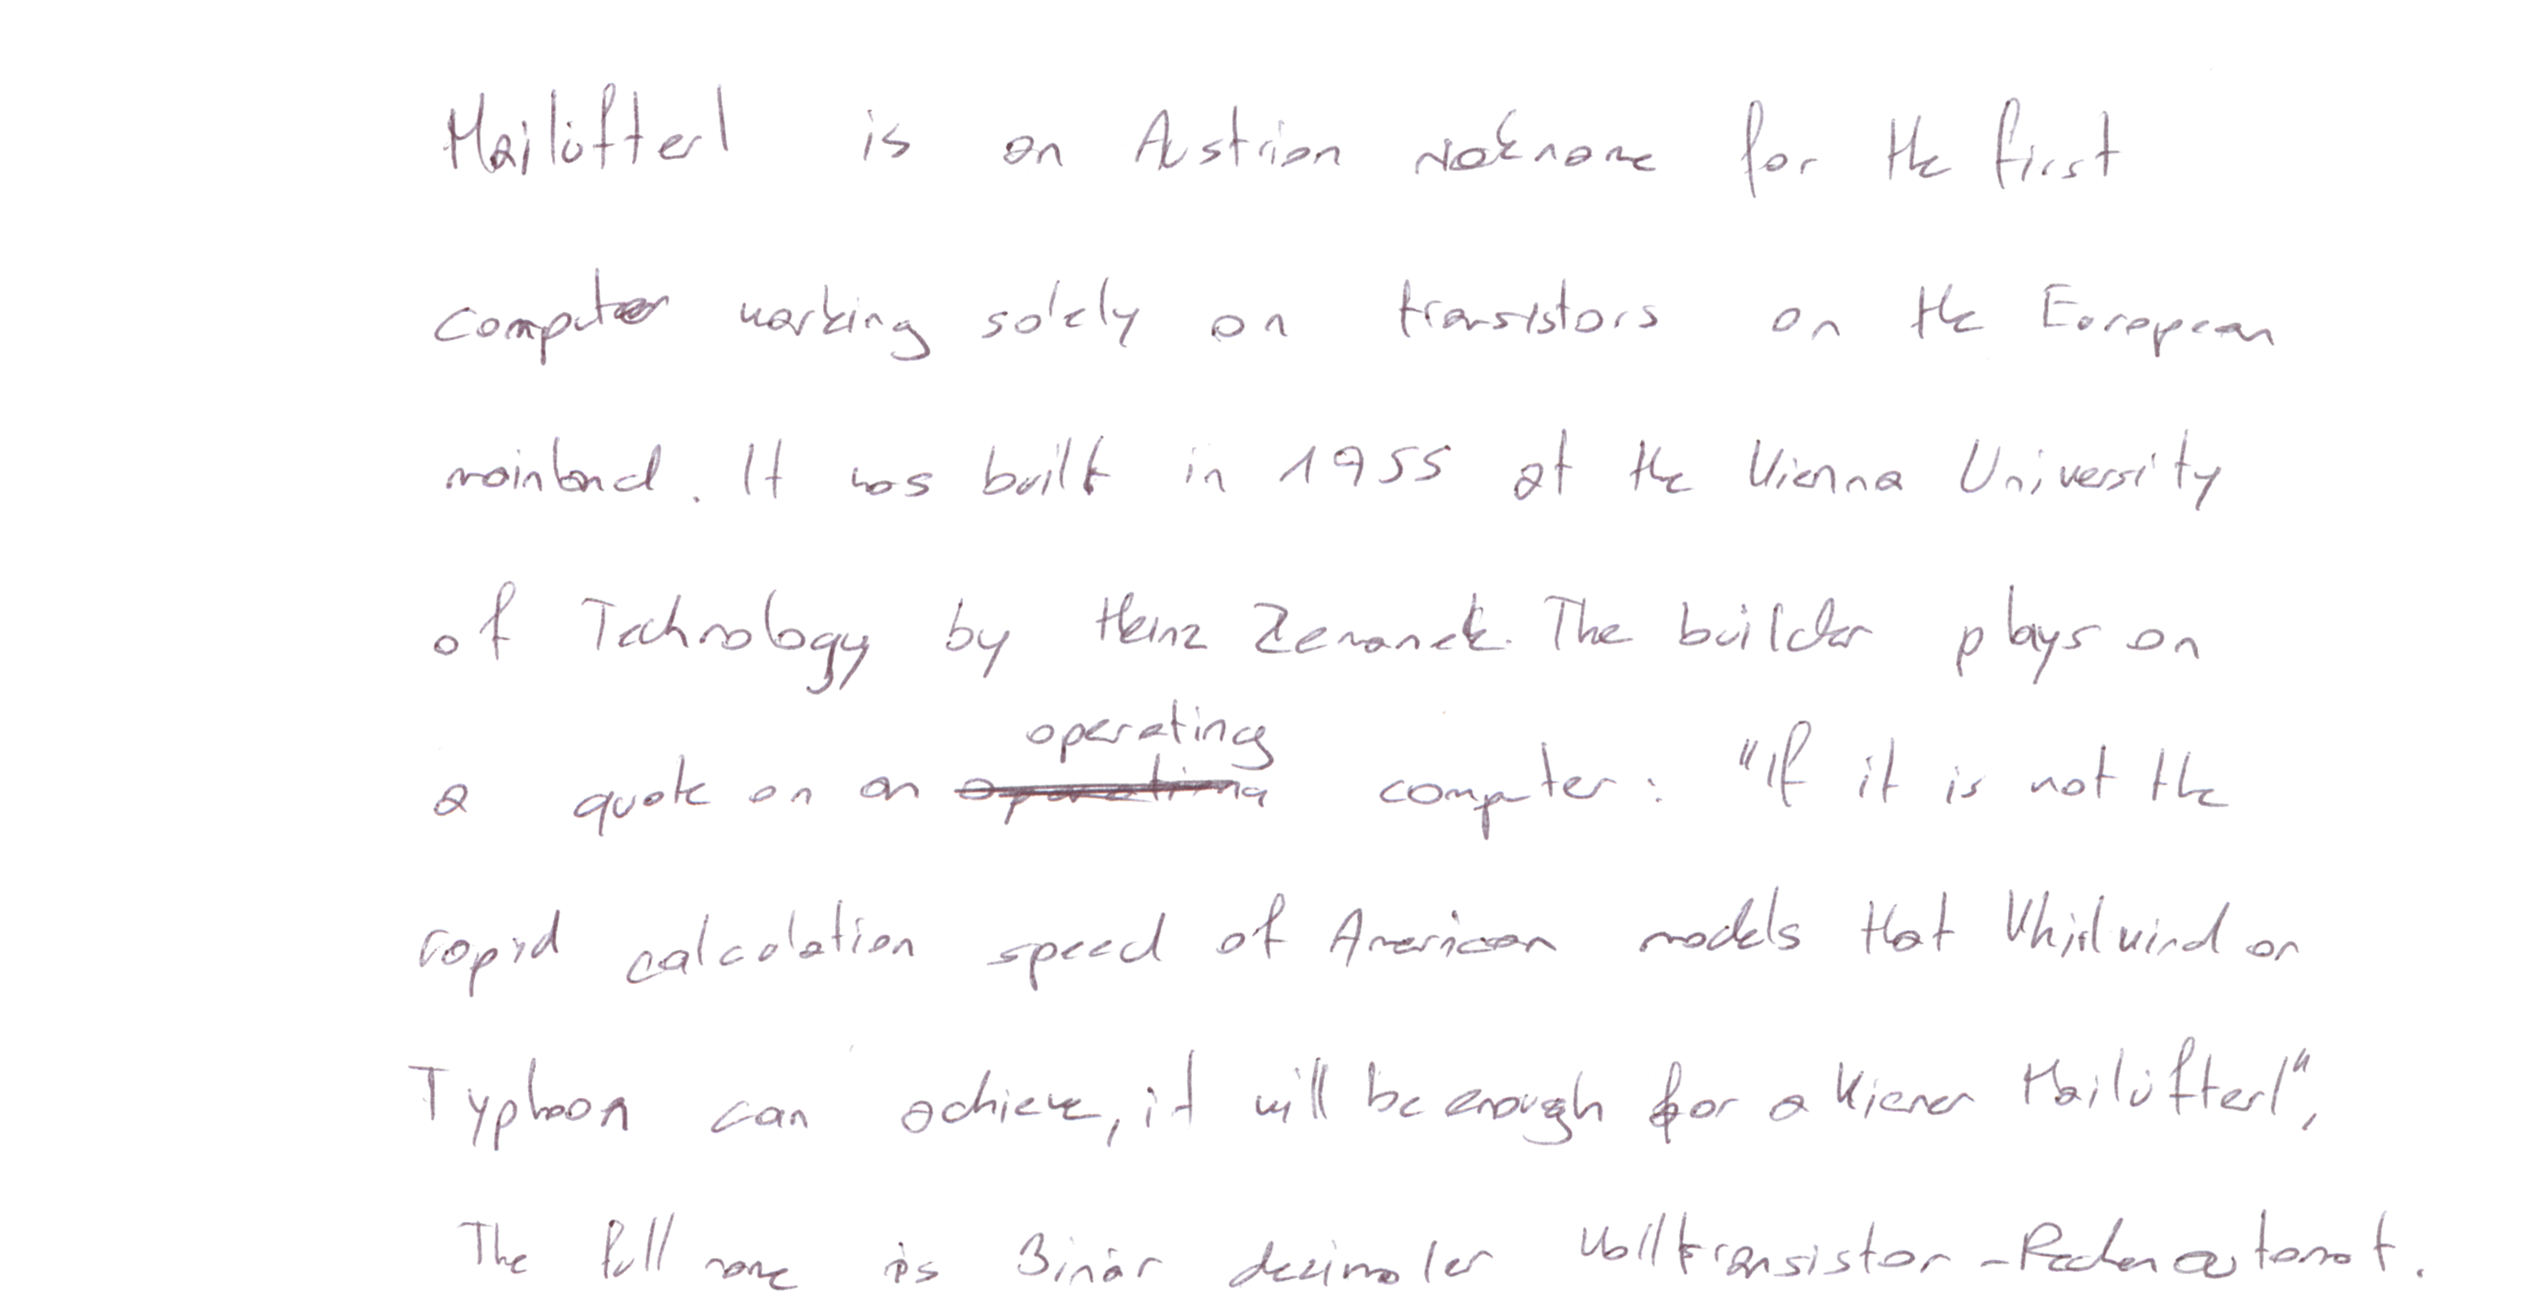 Mailüfterl is an Austrian nickname for the first
computer working solely on transistors on the European
mainland. It was built in 1955 at the Vienna University
of Technology by Heinz Zemanek. The builder plays on
operating
a quote on an operating computer: "If it is not the
rapid calculation speed of American models that Whirlwind or
Typhoon can achieve, it will be enough for a Wiener Mailüfterl",
The full name is Binär dezimaler Volltransistor-Rechenautomat.